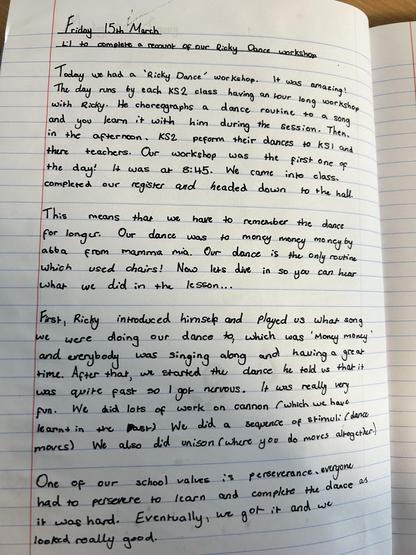 Friday 15th March
L.I to complete a recount of our Ricky Dance workshop
Today we had a 'Ricky Dance' workshop. It was amazing!
The day runs by each KS2 class having an hour long workshop
with Ricky. He choreographs a dance routine to a song
and you learn it with him during the session. Then,
in the afternoon. KS2 peform their dances to KS1 and
there teachers. Our workshop was the first one of
the day! It was at 8:45. We came into class,
completed our register and headed down to the hall.
This means that we have to remember the dance
for longer. Our dance was to money money money by
abba from mamma mia. Our dance is the only routine
which used chairs! Now lets dive in so you can hear
what we did in the lesson...
First, Ricky introduced himself and played us what song
we were doing our dance to, which was 'Money money'
and everybody was singing along and having a great
time. After that, we started the dance he told us that it
was quite fast so I got nervous. It was really very
fun. We did lots of work on cannon (which we have
learnt in the past) We did a sequence of stimuli (dance
moves) We also did unison (where you do moves altogether)
One of our school values is perseverance. everyone
had to persevere to learn and complete the dance as
it was hard. Eventually, we got it and we
looked really good.